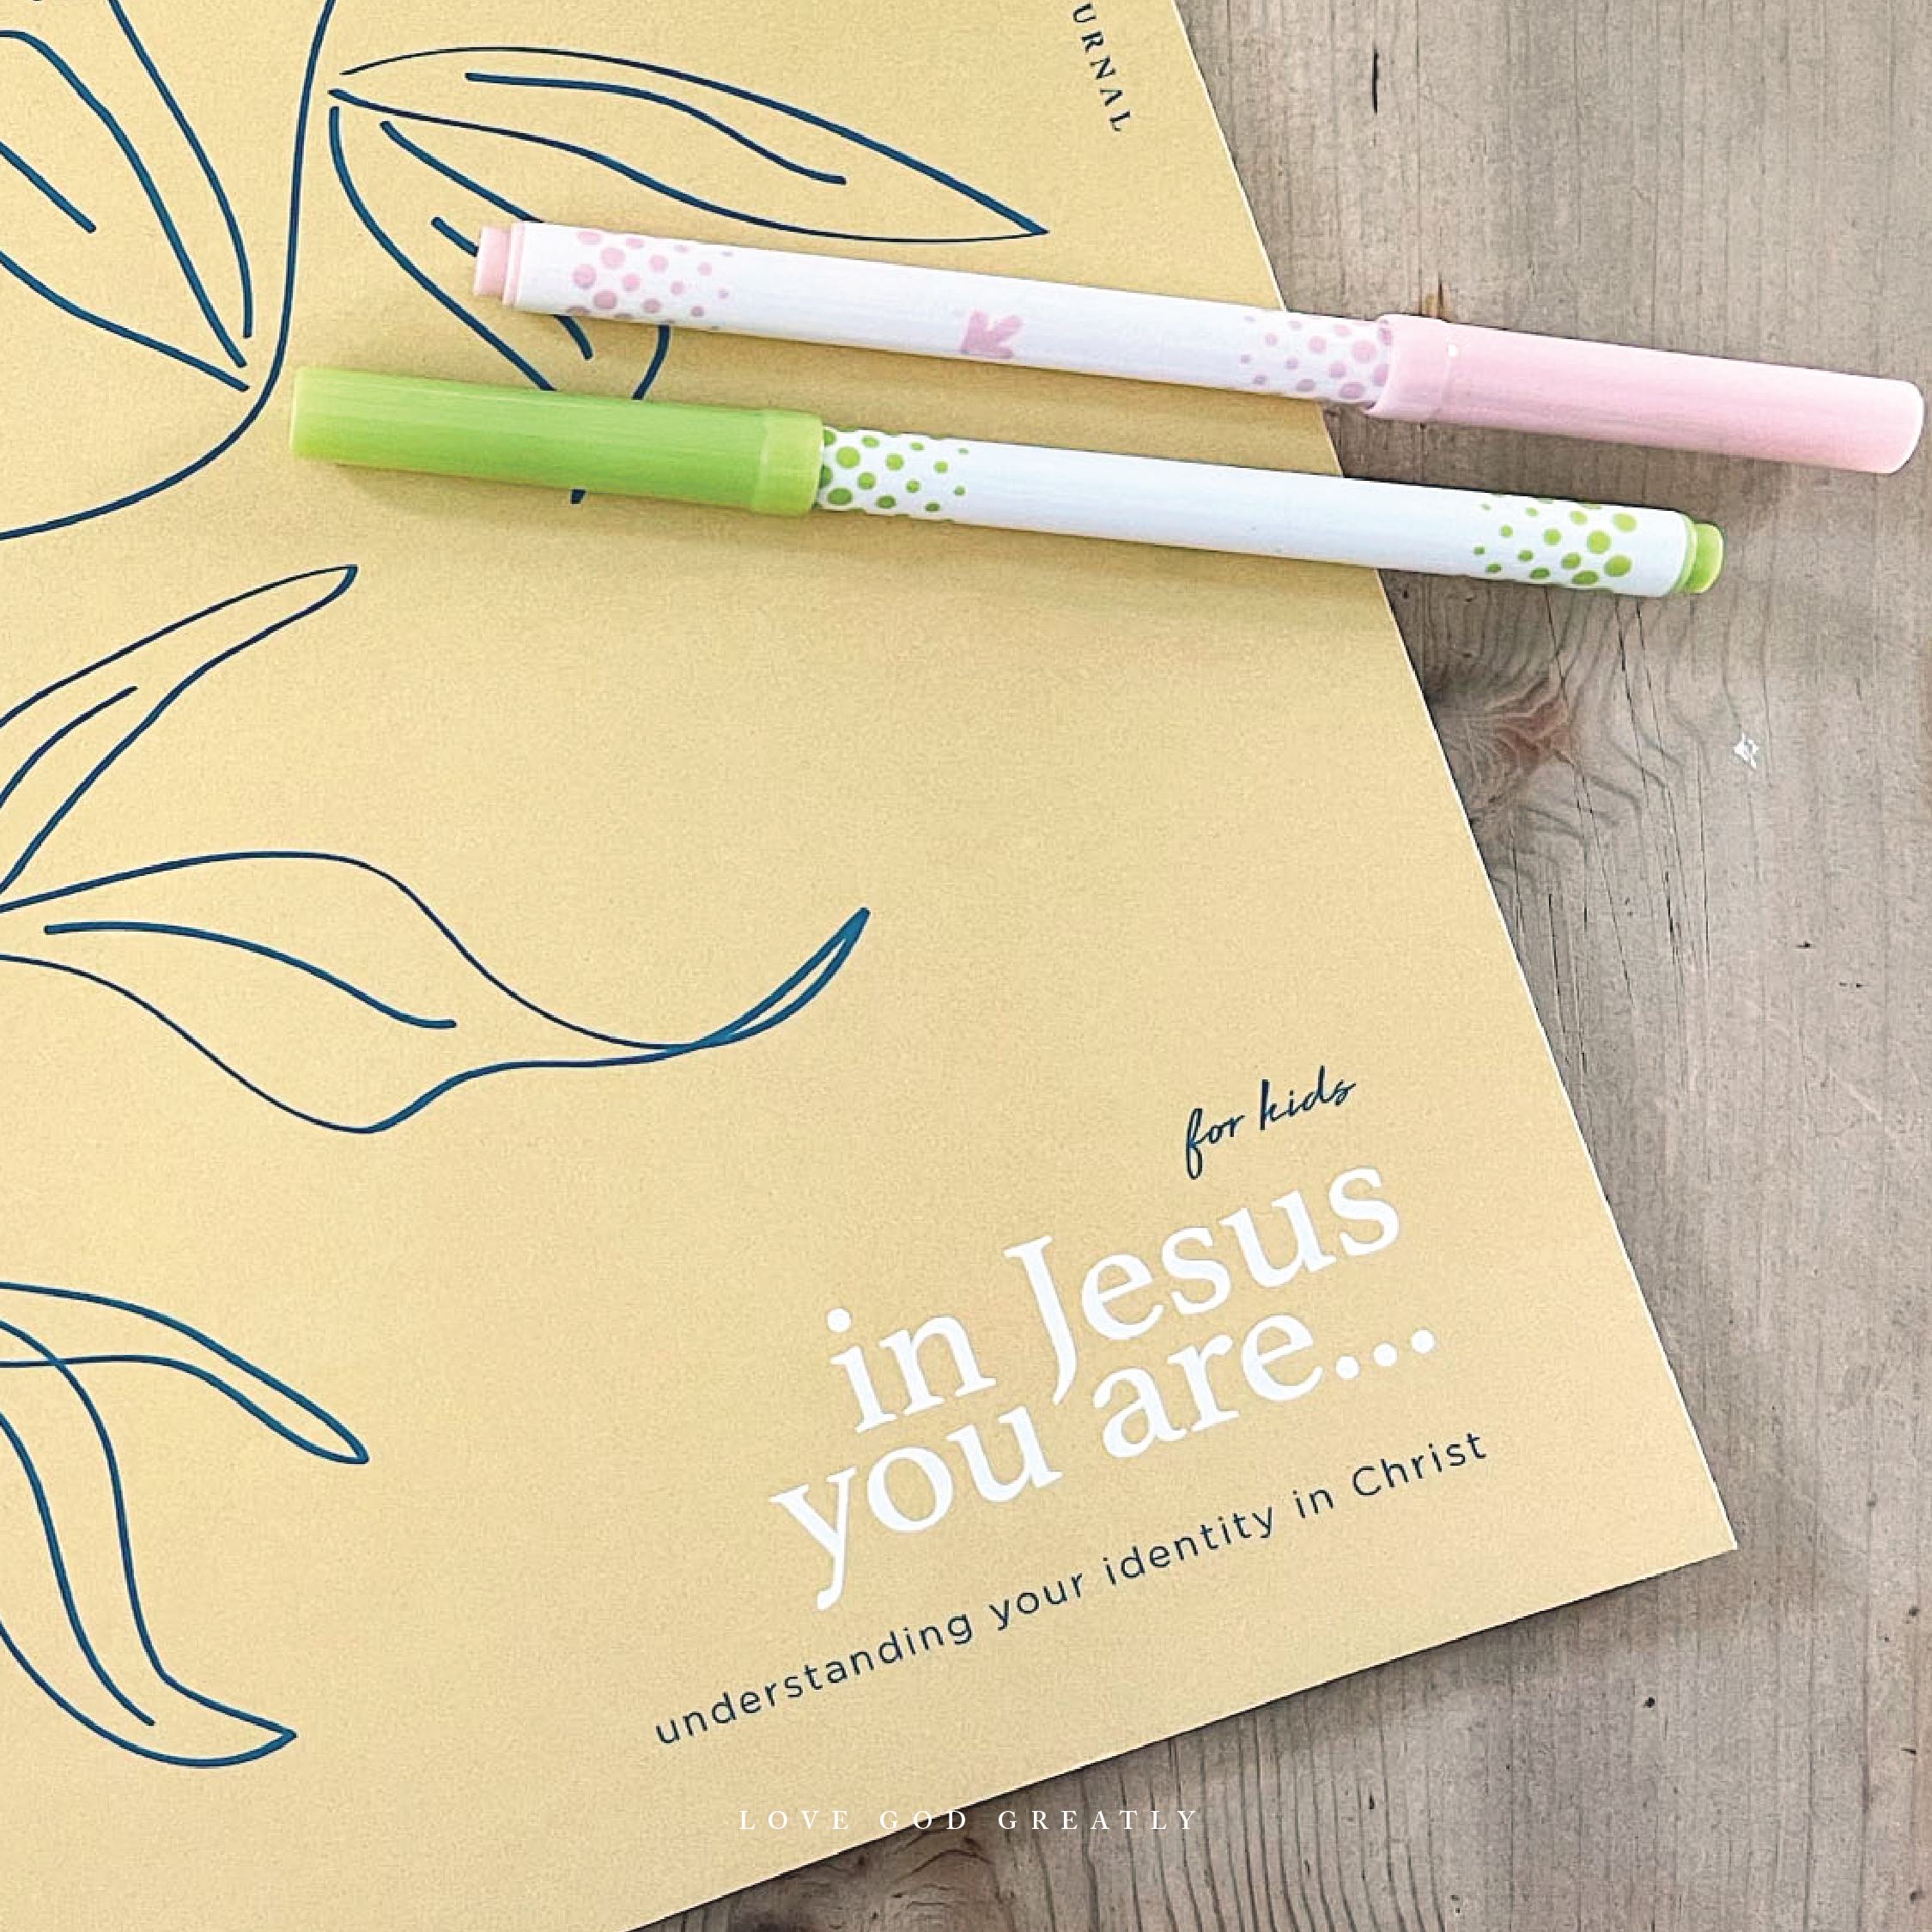 for kids
in Jesus
you are...
understanding your identity in Christ
LOVE GOD GREATLY